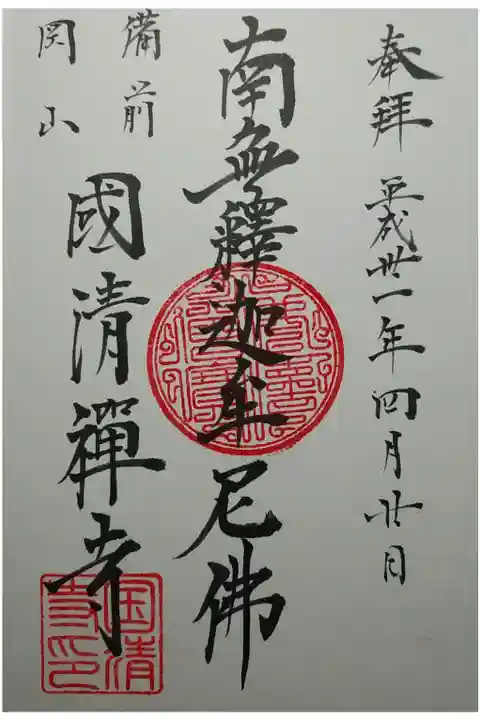 奉拜 平成丗一年四月廿日
南無釋迦牟尼佛
備前
岡山
國清禪寺
国清
寺印